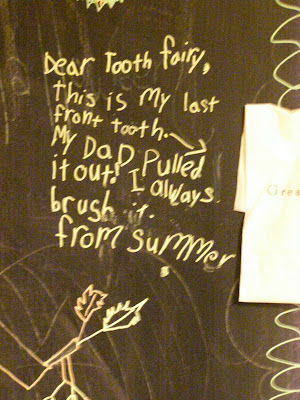 Dear Tooth fairy,
this is my last
front tooth.
My DaD Pulled
it out! I always
brush it.
from Summer
Grea